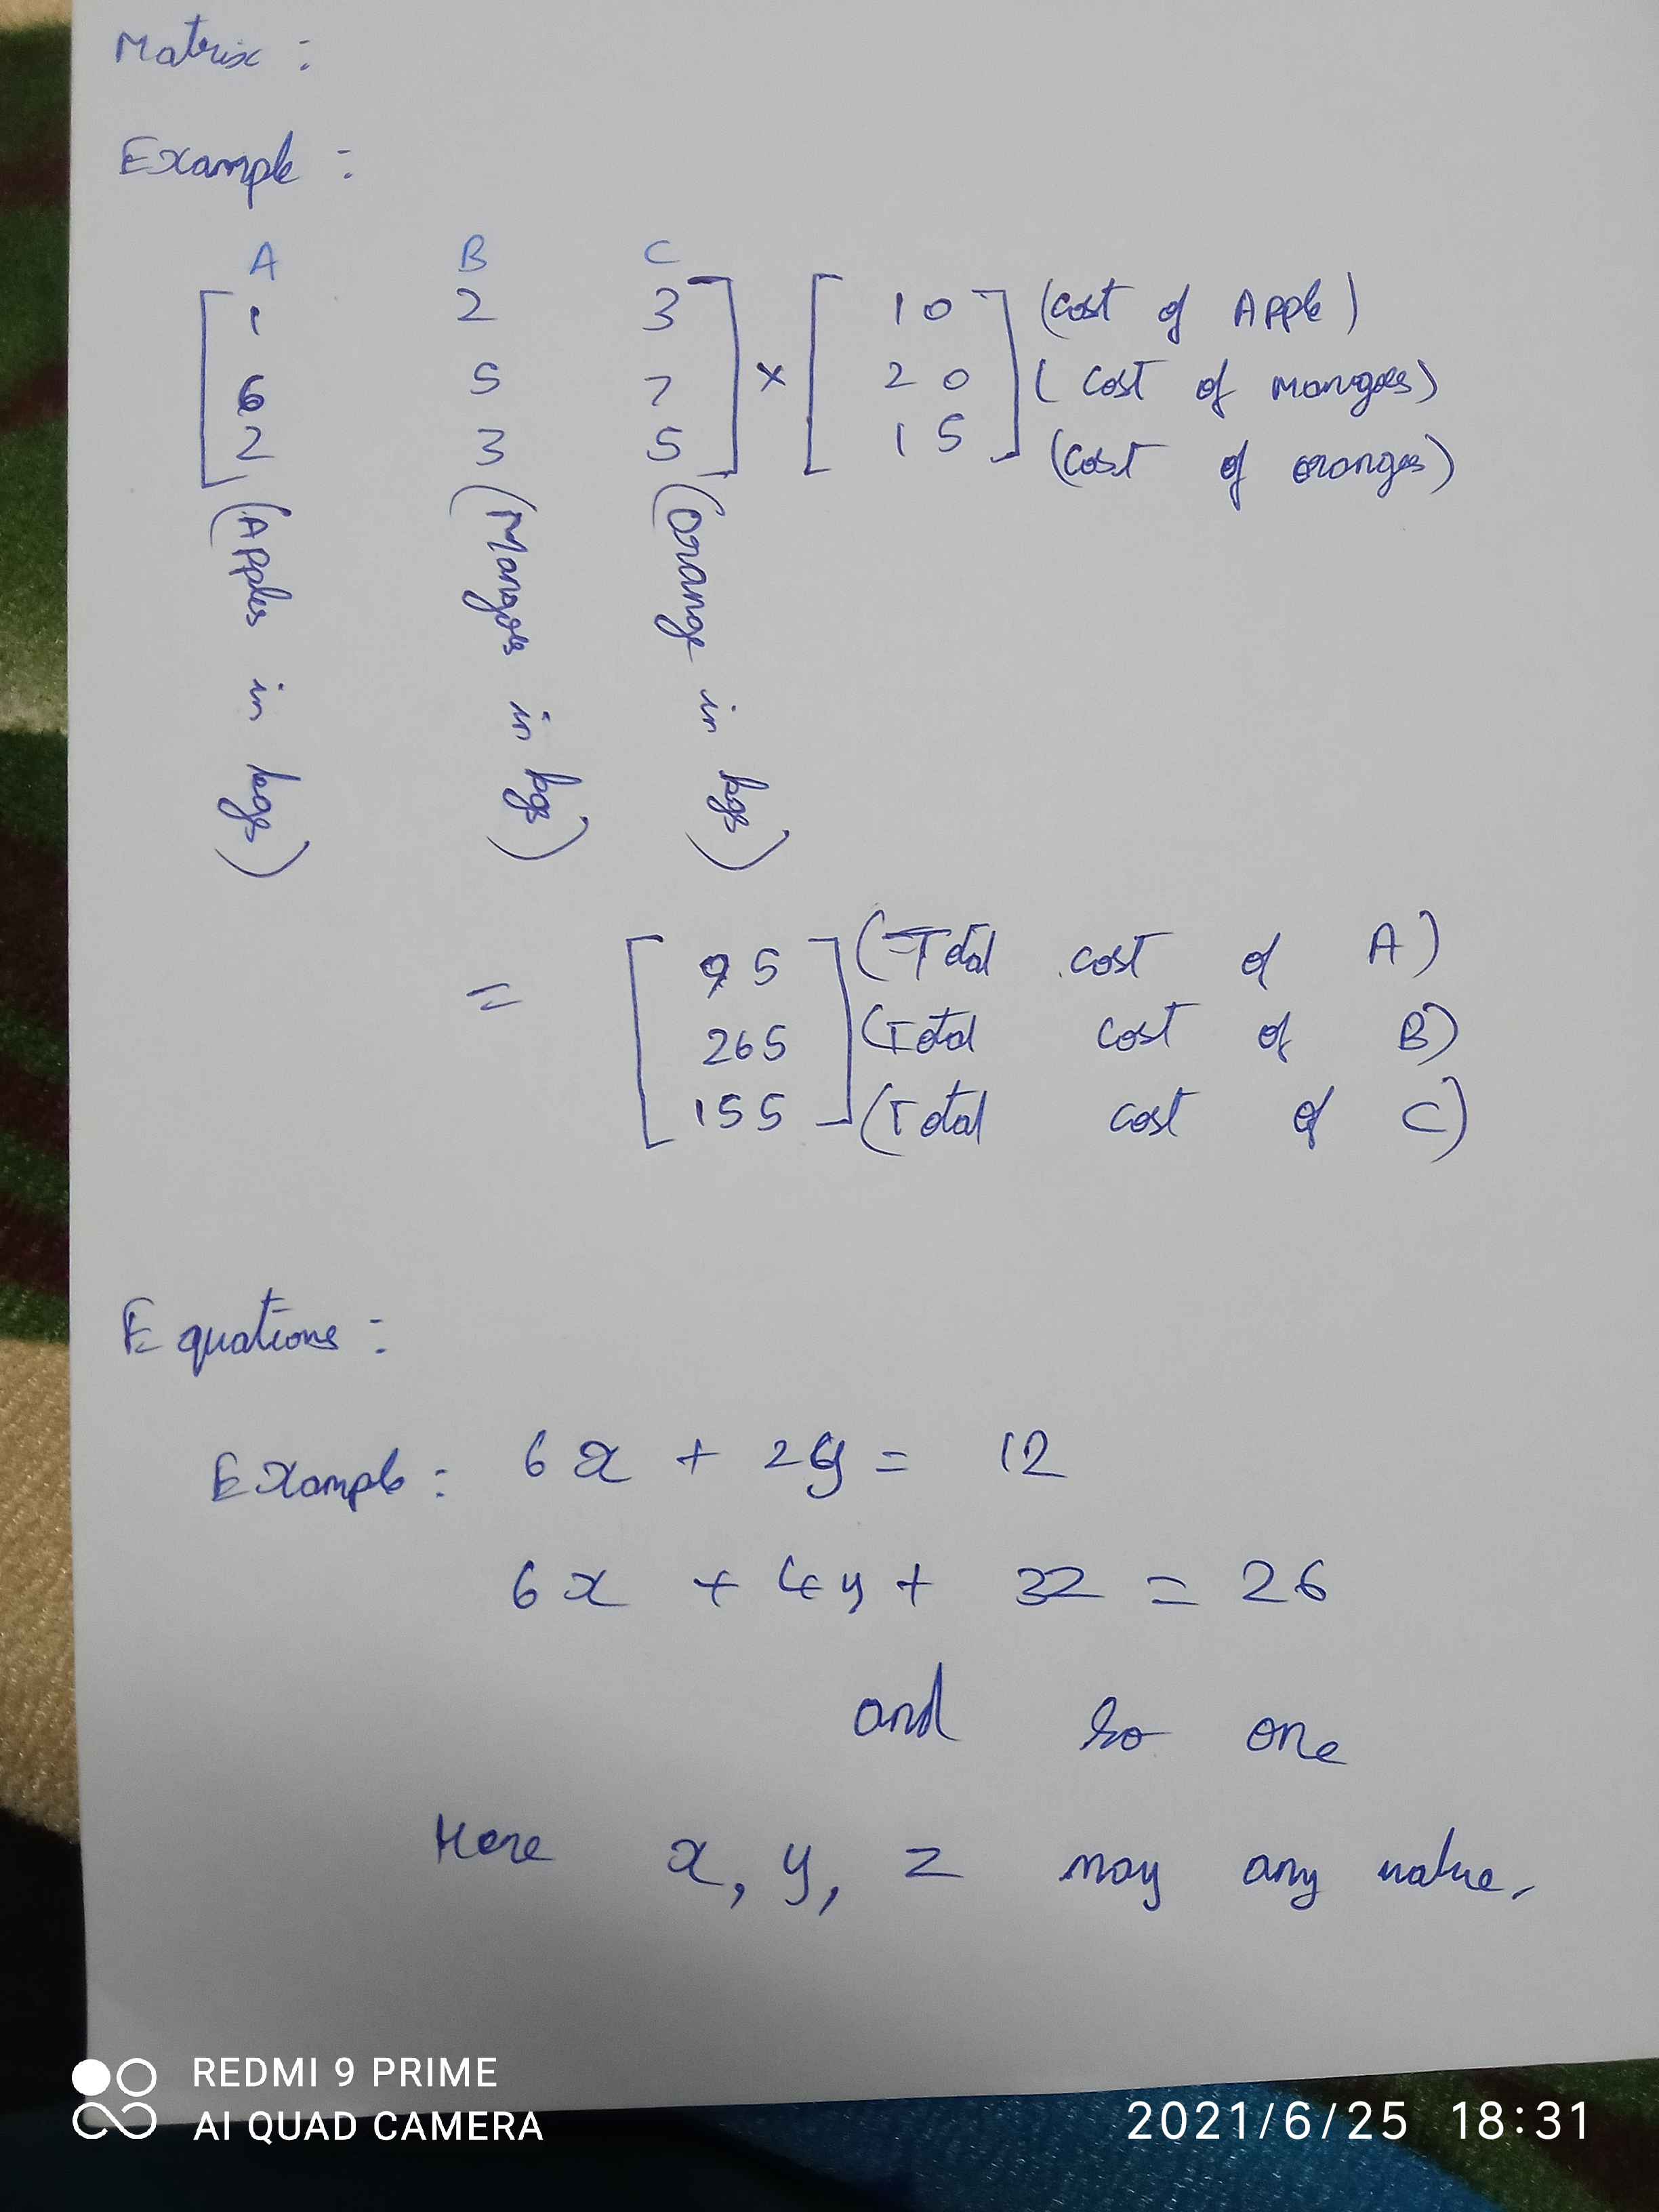 Matrix :
Example :
A B C
[ 1 2 3 ] × [ 10 ] (cost of Apple)
[ 6 5 7 ] [ 20 ] (cost of mangoes)
[ 2 3 5 ] [ 15 ] (cost of oranges)
(Apples in kgs)
(Mangoes in kgs)
(Orange in kgs)
= [ 95 ] (Total cost of A)
[ 265 ] (Total cost of B)
[ 155 ] (Total cost of C)
Equations :
Example : 6x + 2y = 12
6x + 4y + 3z = 26
and so one
Here x, y, z may any value.
REDMI 9 PRIME
AI QUAD CAMERA
2021/6/25 18:31